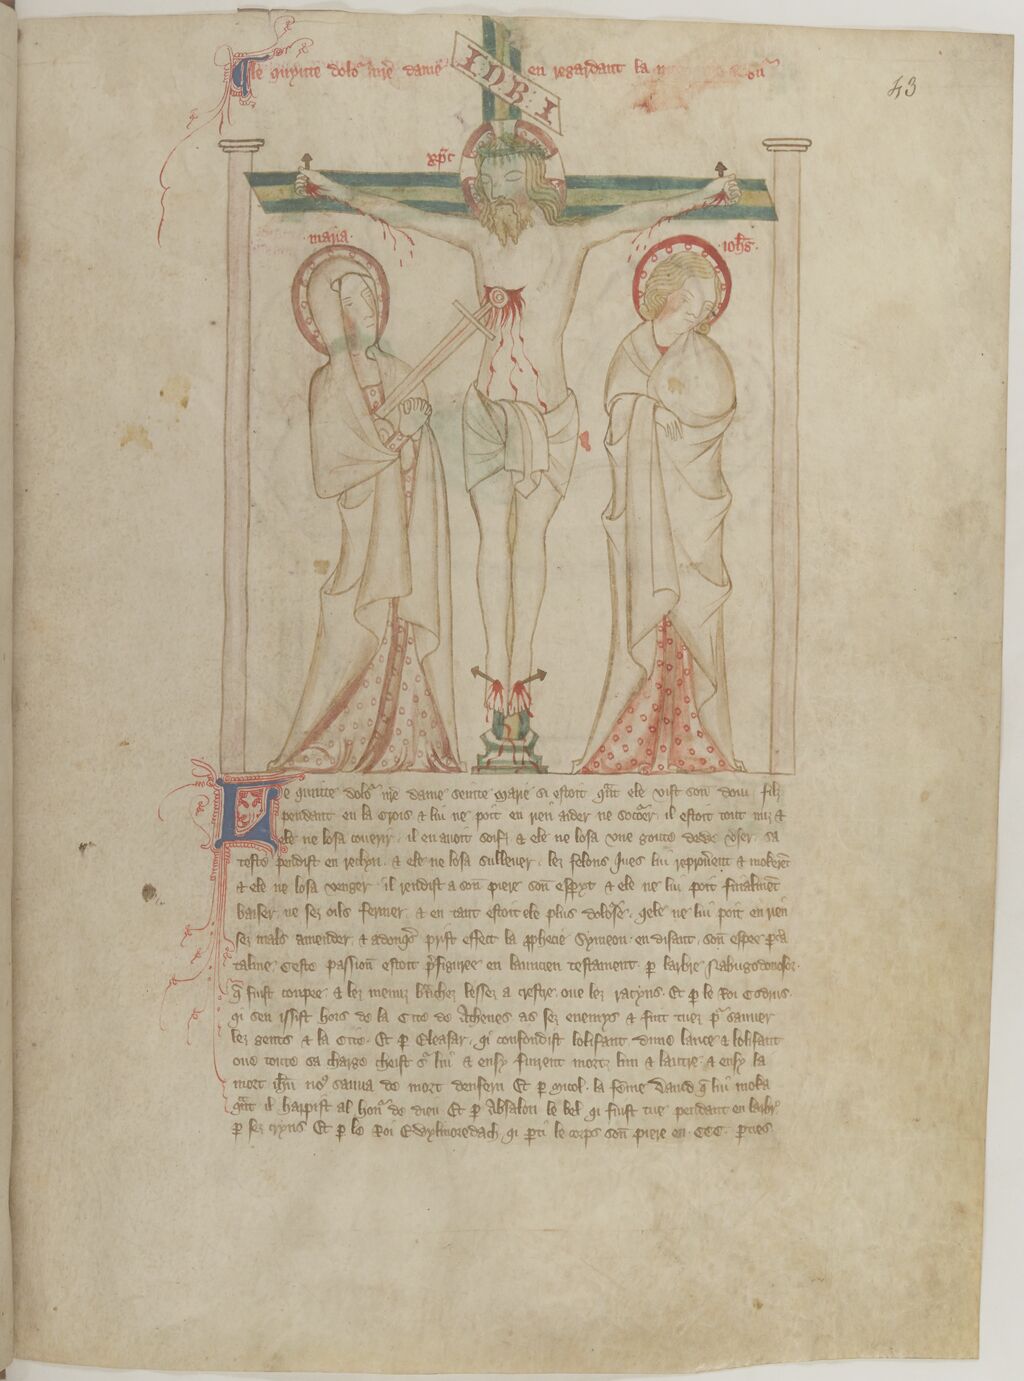 Le quinte dolor nre dame en regardant la
I.N.R.I
43
xpc
maria
iohes
Le quinte dolor nre dame seinte marie si estoit qnt ele vist son douz filz
pendant en la crois & lui ne poit en rien aider ne socorer. il estoit tout nuz &
ele ne losa couerir. il en auoit soif & ele ne losa vne goute de user. sa
teste pendist en reclyn. & ele ne losa susleuer. lez felons iues lui reprouerent & mokerent
& ele ne losa venger. il rendist a son piere son espyt & ele ne lui poit finalment
baiser. ne sez oils fermer. & en tant estoit ele plus dolorose. qele ne lui poit en rien
sez mals amender. & adonqes prist effect la pphecie Symeon. en disant. son espee pcera
talme. Ceste passion estoit pfiguree en launcien testament. p larbre Nabugodonosor.
qe fuist coupee & lez menuz branches lessez a crestre. oue lez racyns. Et p le Roi Codrus.
qi sen issist hors de la Cite de Athenes as sez enemys & fuit tuez pr sauuer
lez gents & la Cite. Et p Eleasar. qi confondist lolifant dune lance & lolifant
oue toute sa charge cheist sr lui & ensy furent mortz lun & lautre. & ensy la
mort ihu nos sauua de mort denfern Et p Micol. la feme dauid qe lui moka
qnt il harpist al honr de dieu Et p Absalon le bel qi fuist tue pendant en larbr
p sez cryns Et p le Roi Ewylmoredach. qi pti le corps son piere en .CCC. pties